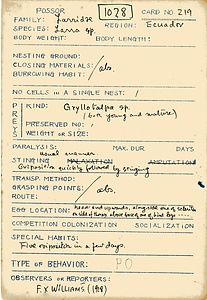 POSSOR 1028 CARD NO. 219
FAMILY: Larridae REGION: Ecuador
SPECIES: Larra sp.
BODY WEIGHT: BODY LENGTH:
NESTING GROUND:
CLOSING MATERIALS: abs.
BURROWING HABIT:
NO. CELLS IN A SINGLE NEST: 1
PREYS
KIND: Gryllotalpa sp.
(both young and mature)
PRESERVED NO.:
WEIGHT OR SIZE:
PARALYSIS: MAX. DUR DAYS
usual manner
STINGING MALAXATION AMPUTATION
Oviposition quickly followed by stinging
TRANSP. METHOD:
GRASPING POINTS: abs.
ROUTE:
EGG LOCATION: head end upwards, alongside one of
COMPETITION COLONIZATION SOCIALIZATION
SPECIAL HABITS:
Five oviposition in a few days.
TYPE OF BEHAVIOR: PO
OBSERVERS OR REPORTERS:
F.X WILLIAMS